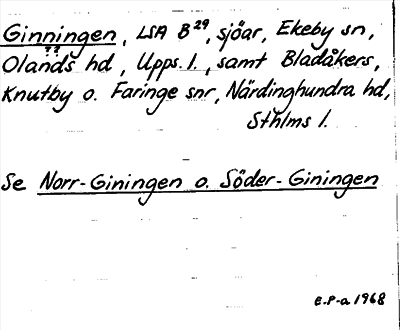 Ginningen, LSA B29, sjöar, Ekeby sn,
Olands hd, Upps. l., samt Bladåkers,
Knutby o. Faringe snr, Närdinghundra hd,
Sthlms l.
Se Norr-Giningen o. Söder-Giningen
E.P-a 1968